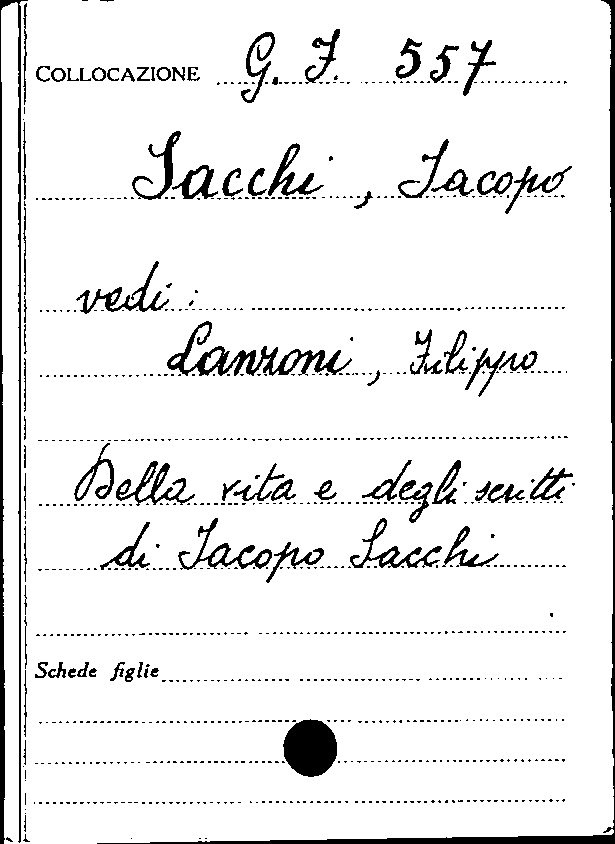 COLLOCAZIONE G. F. 557
Sacchi, Jacopo
vedi:
Lanzoni, Filippo
Della vita e degli scritti
di Jacopo Sacchi
Schede figlie